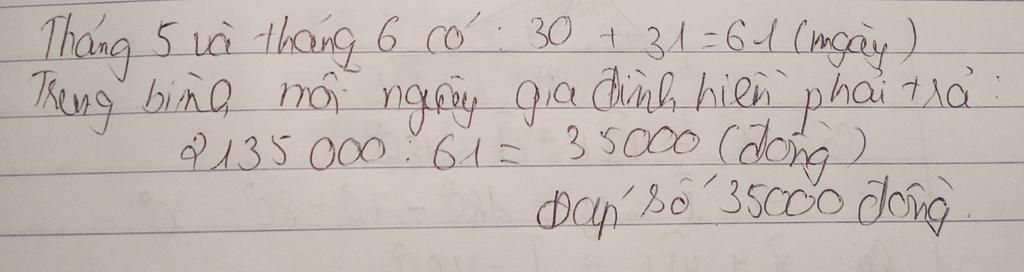 Tháng 5 và tháng 6 có: 30 + 31 = 61 (ngày)
Trung bình mỗi ngày gia đình hiền phải trả:
2135 000 : 61 = 35000 (đồng)
Đáp số 35000 đồng.